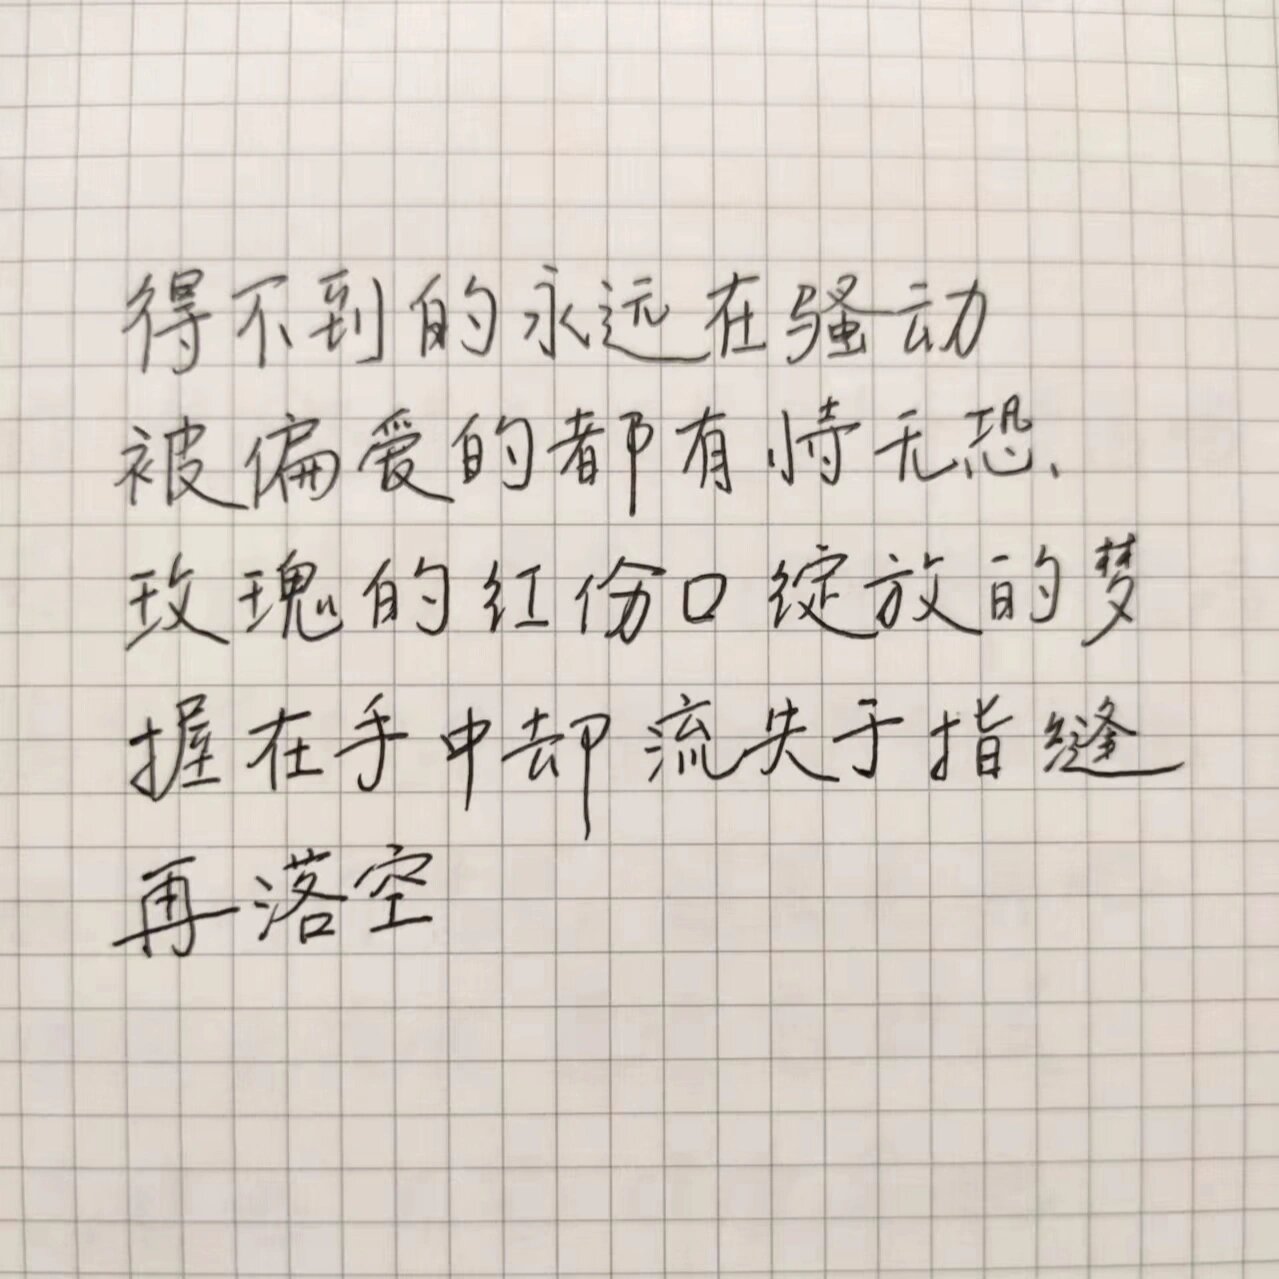 得不到的永远在骚动
被偏爱的都有恃无恐、
玫瑰的红伤口绽放的梦
握在手中却流失于指缝
再落空